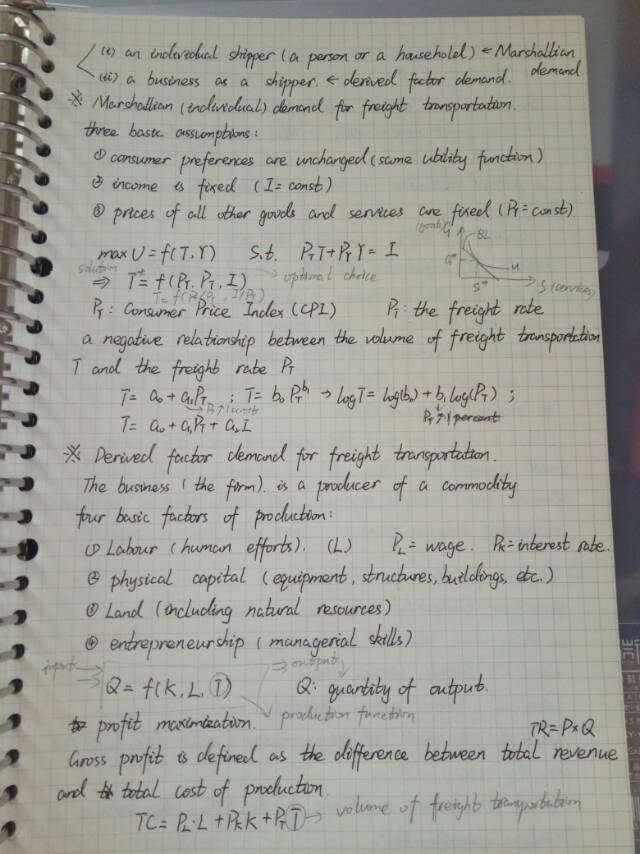 (i) an individual shipper (a person or a household) ← Marshallian demand
(ii) a business as a shipper. ← derived factor demand.
※ Marshallian (individual) demand for freight transportation.
three basic assumptions:
① consumer preferences are unchanged (same utility function)
② income is fixed (I = const)
③ prices of all other goods and services are fixed (PY = const).
max U = f(T, Y) S.t. PT T + PY Y = I
solution
⇒ T* = f(PT, PY, I) optimal choice
T = f(PT/PY, I/PY)
(goods) G BL
G* U
S* S (services)
PY: Consumer Price Index (CPI) PT: the freight rate
a negative relationship between the volume of freight transportation
T and the freight rate PT
T = a0 + a1PT ; T = b0 PT^b1 → log T = log(b0) + b1 log(PT) ;
PT ↑ 1 unit PT ↑ 1 percent
T = a0 + a1PT + a2I
※ Derived factor demand for freight transportation.
The business (the firm) is a producer of a commodity
four basic factors of production:
① Labour (human efforts). (L) PL = wage. PK = interest rate.
② physical capital (equipment, structures, buildings, etc.)
③ Land (including natural resources)
④ entrepreneurship (managerial skills)
input → ⇒ output
Q = f(K, L, T) Q: quantity of output.
production function
profit maximization. TR = P×Q
Gross profit is defined as the difference between total revenue
and total cost of production.
TC = PL·L + PK K + PT T → volume of freight transportation